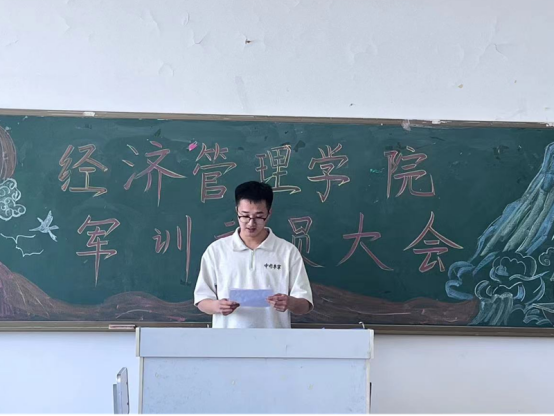 经济管理学院
军训 员大会